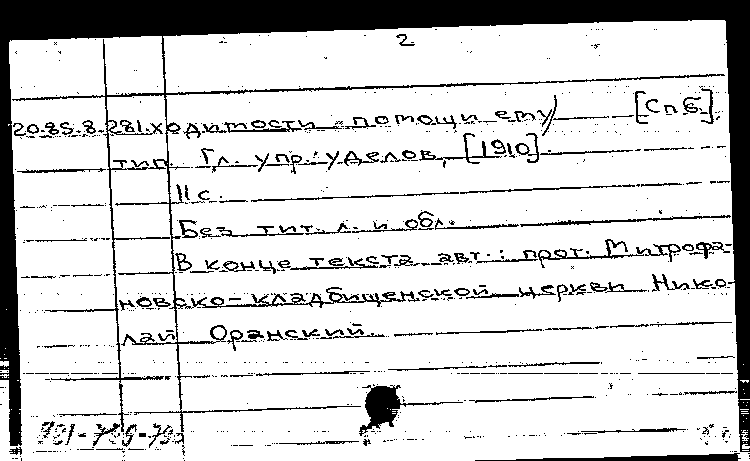 2
20.85.8.281. ходимости помощи ему) [Спб],
тип. Гл. упр. уделов, [1910].
11 с.
Без тит. л. и обл.
В конце текста авт.: прот. Митрофа-
новско-кладбищенской церкви Нико-
лай Оранский.